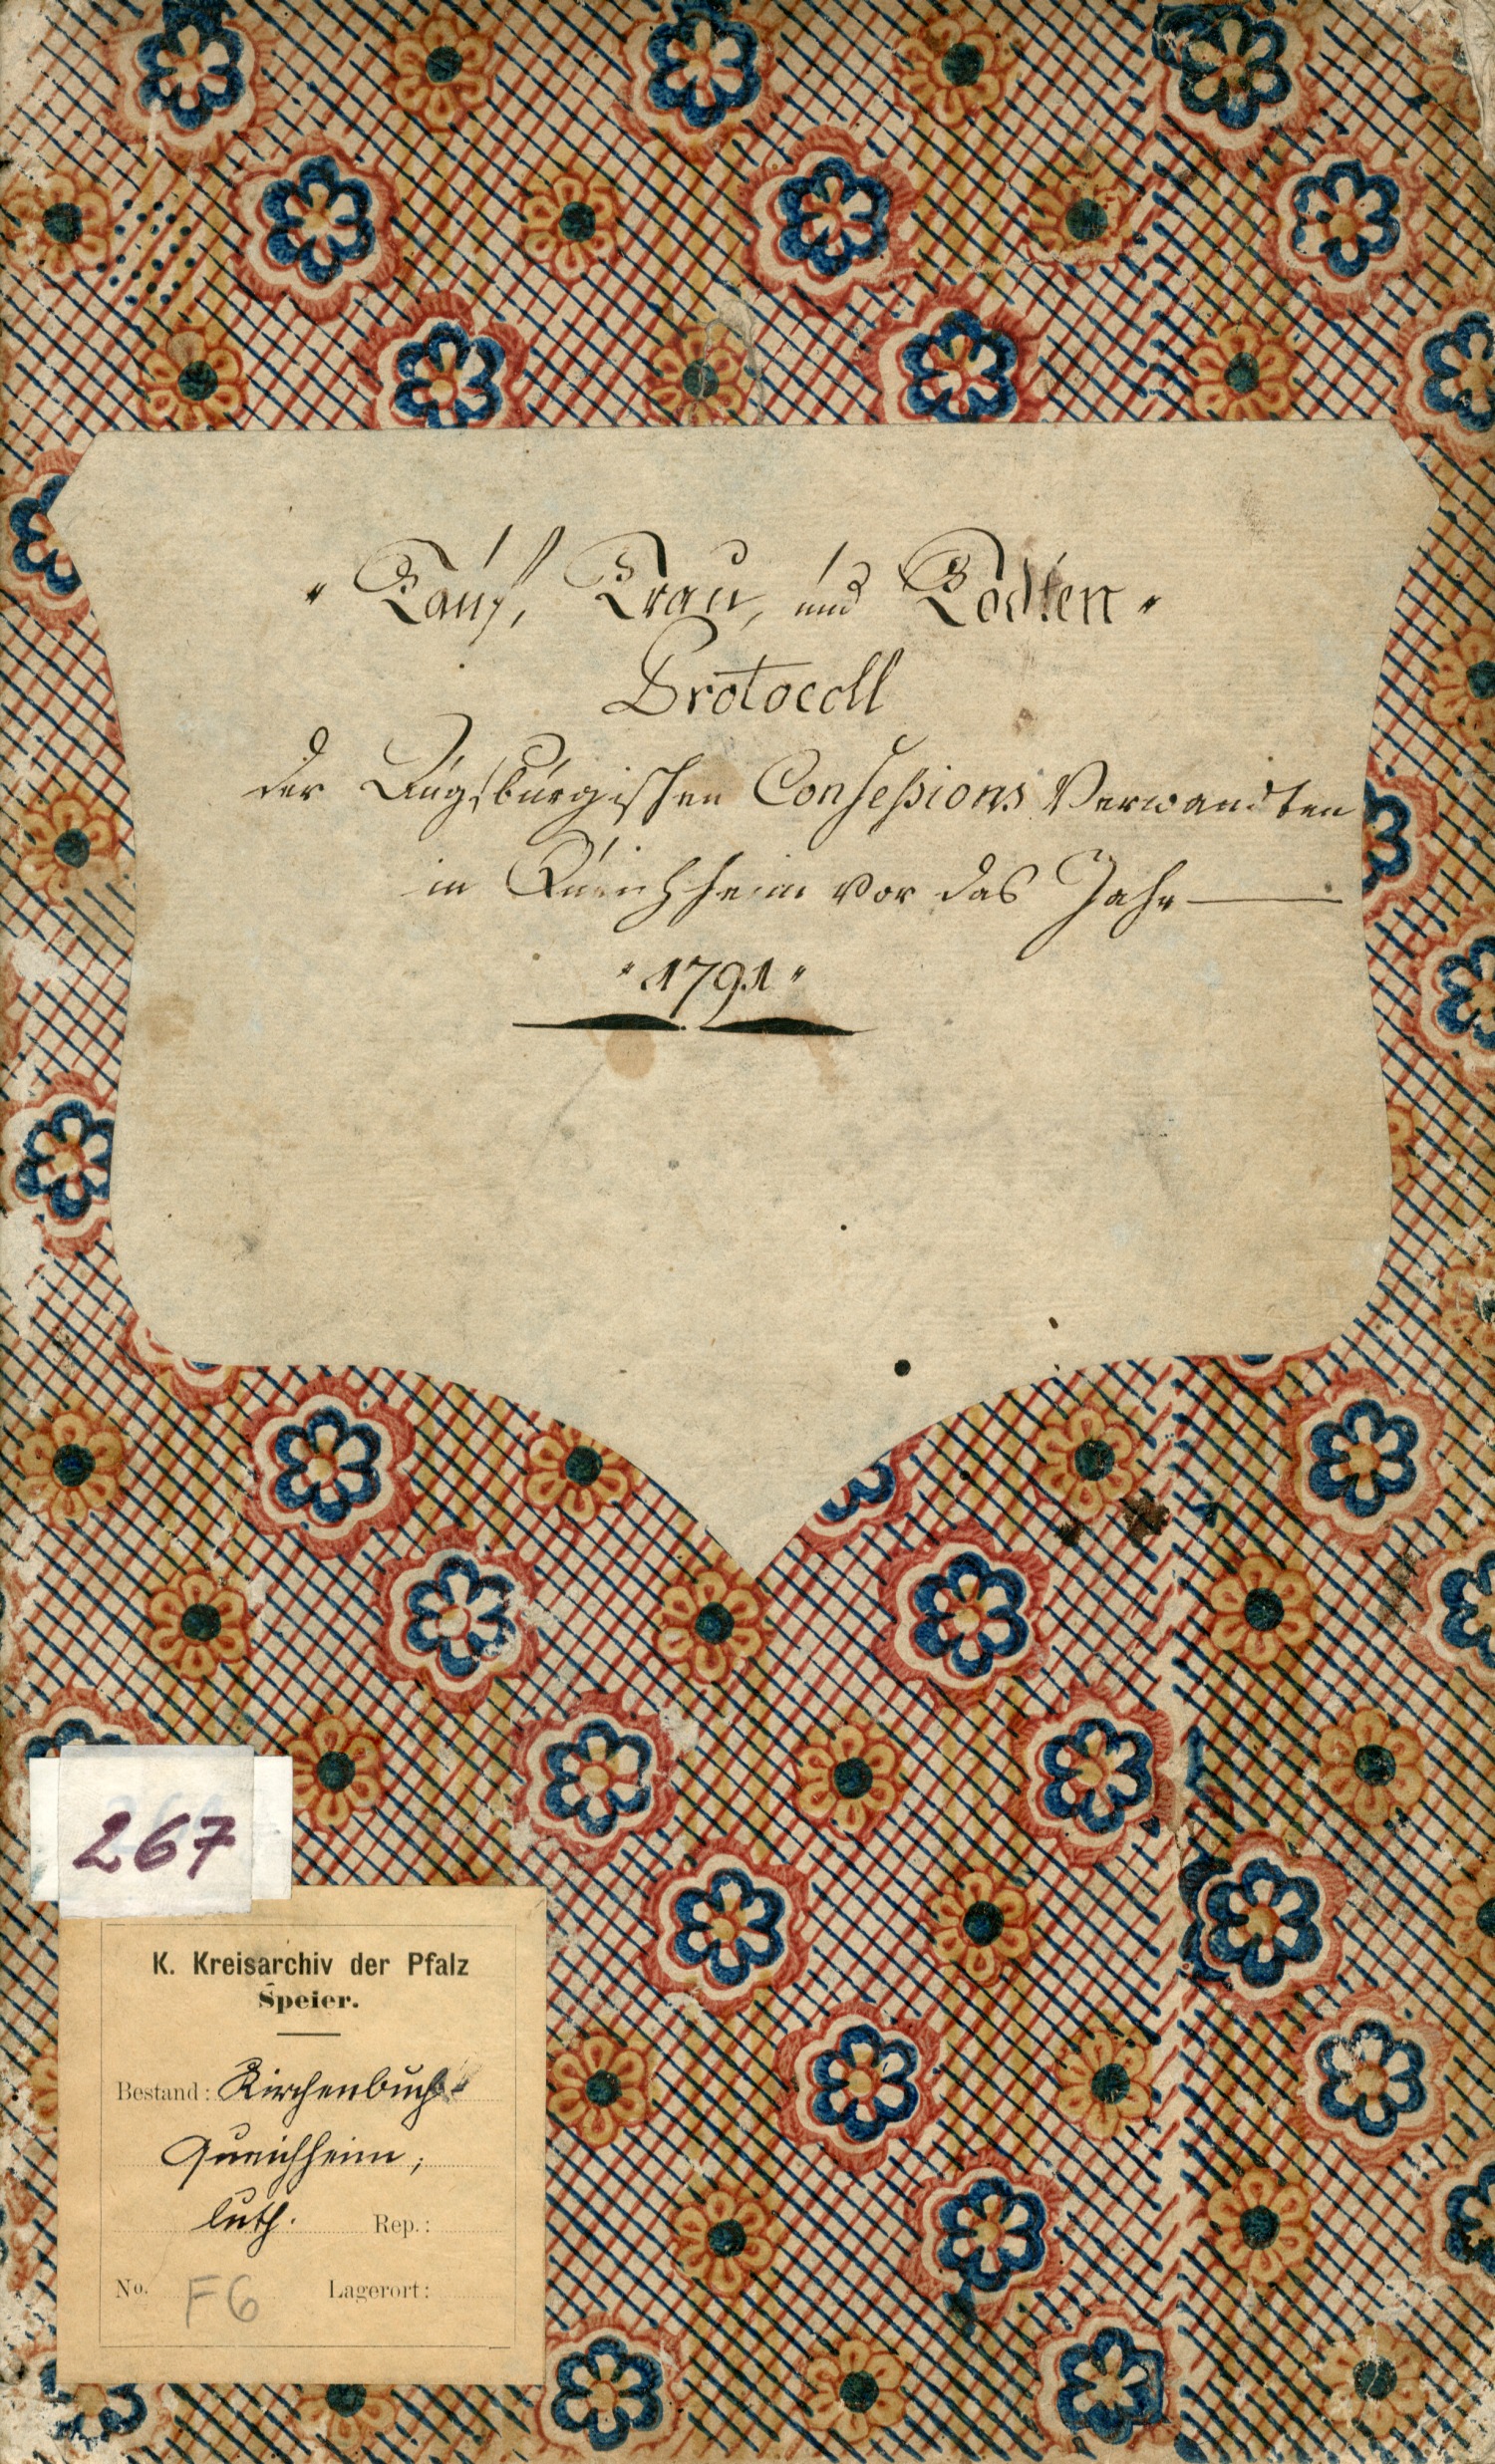 " Tauf, Trau, und Todten "
Protocoll
der Augsburgischen Confeßions Verwandten
in Queichheim vor das Jahr
" 1791 "
267
K. Kreisarchiv der Pfalz
Speier.
Bestand: Kirchenbuch
Queichheim;
luth. Rep.:
No. F6 Lagerort: